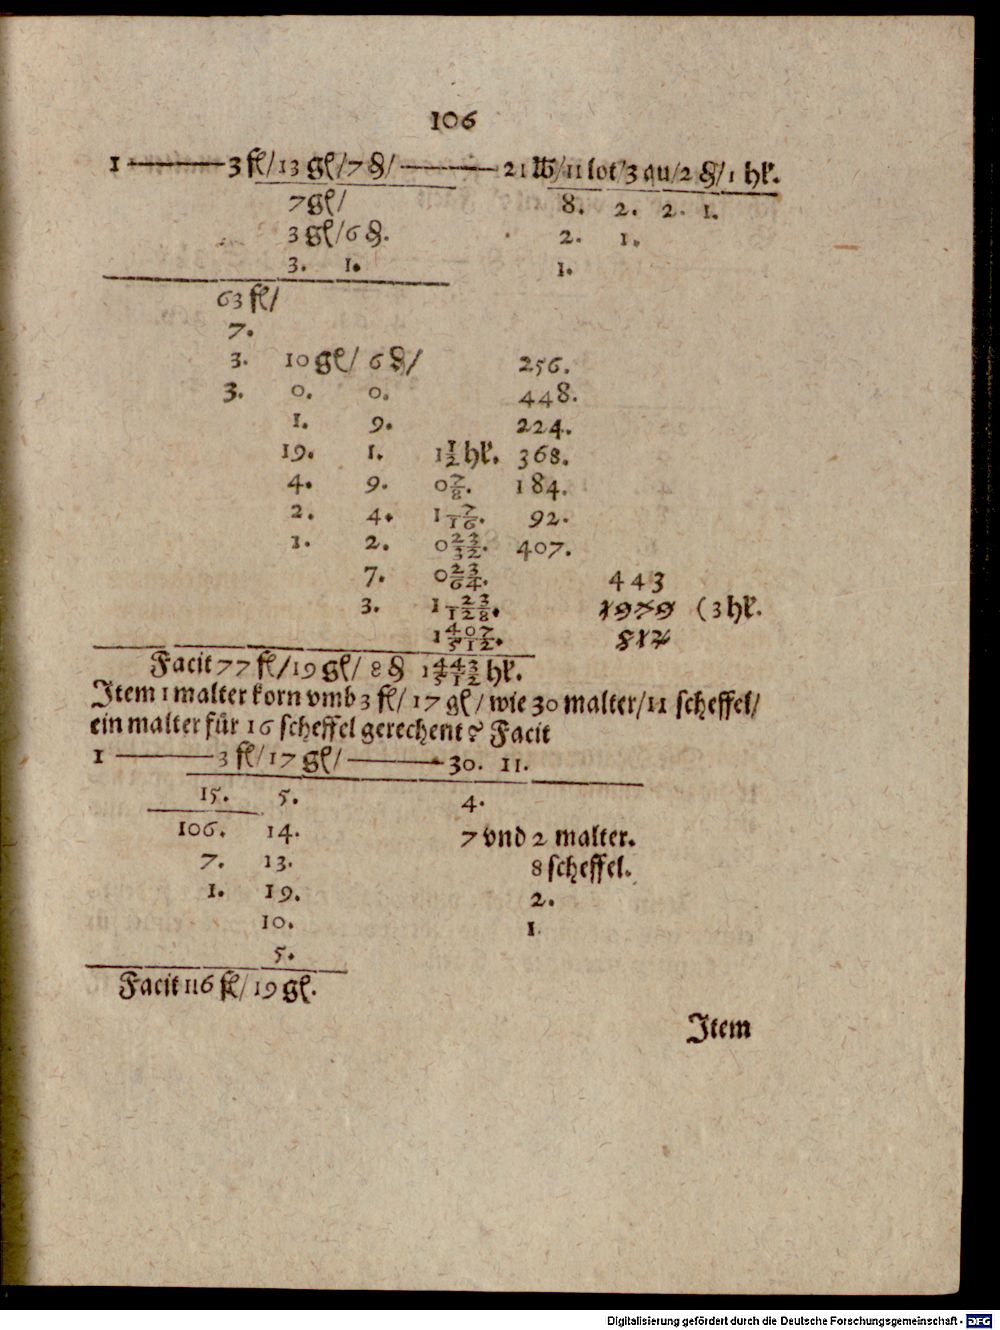 106
1 ——— 3 fl/13 gl/7 ₰/ ——— 21 ℔/11 lot/3 qu/2 ₰/1 hl.
7gl/ 8. 2. 2. 1.
3 gl/6 ₰. 2. 1.
3. 1. 1.
63 fl/
7.
3. 10 gl/ 6 ₰/ 256.
3. 0. 0. 448.
1. 9. 224.
19. 1. 1 1/2 hl. 368.
4. 9. 0 7/8. 184.
2. 4. 1 7/16. 92.
1. 2. 0 23/32. 407.
7. 0 23/64. 443
3. 1 23/128. 1979 (3 hl.
1 407/512. 512
Facit 77 fl/19 gl/ 8 ₰ 1 443/512 hl.
Item 1 malter korn vmb 3 fl/ 17 gl/ wie 30 malter/11 scheffel/
ein malter für 16 scheffel gerechent? Facit
1 ——— 3 fl/17 gl/ ——— 30. 11.
15. 5. 4.
106. 14. 7 vnd 2 malter.
7. 13. 8 scheffel.
1. 19. 2.
10. 1.
5.
Facit 116 fl/ 19 gl.
Item
Digitalisierung gefördert durch die Deutsche Forschungsgemeinschaft - DFG